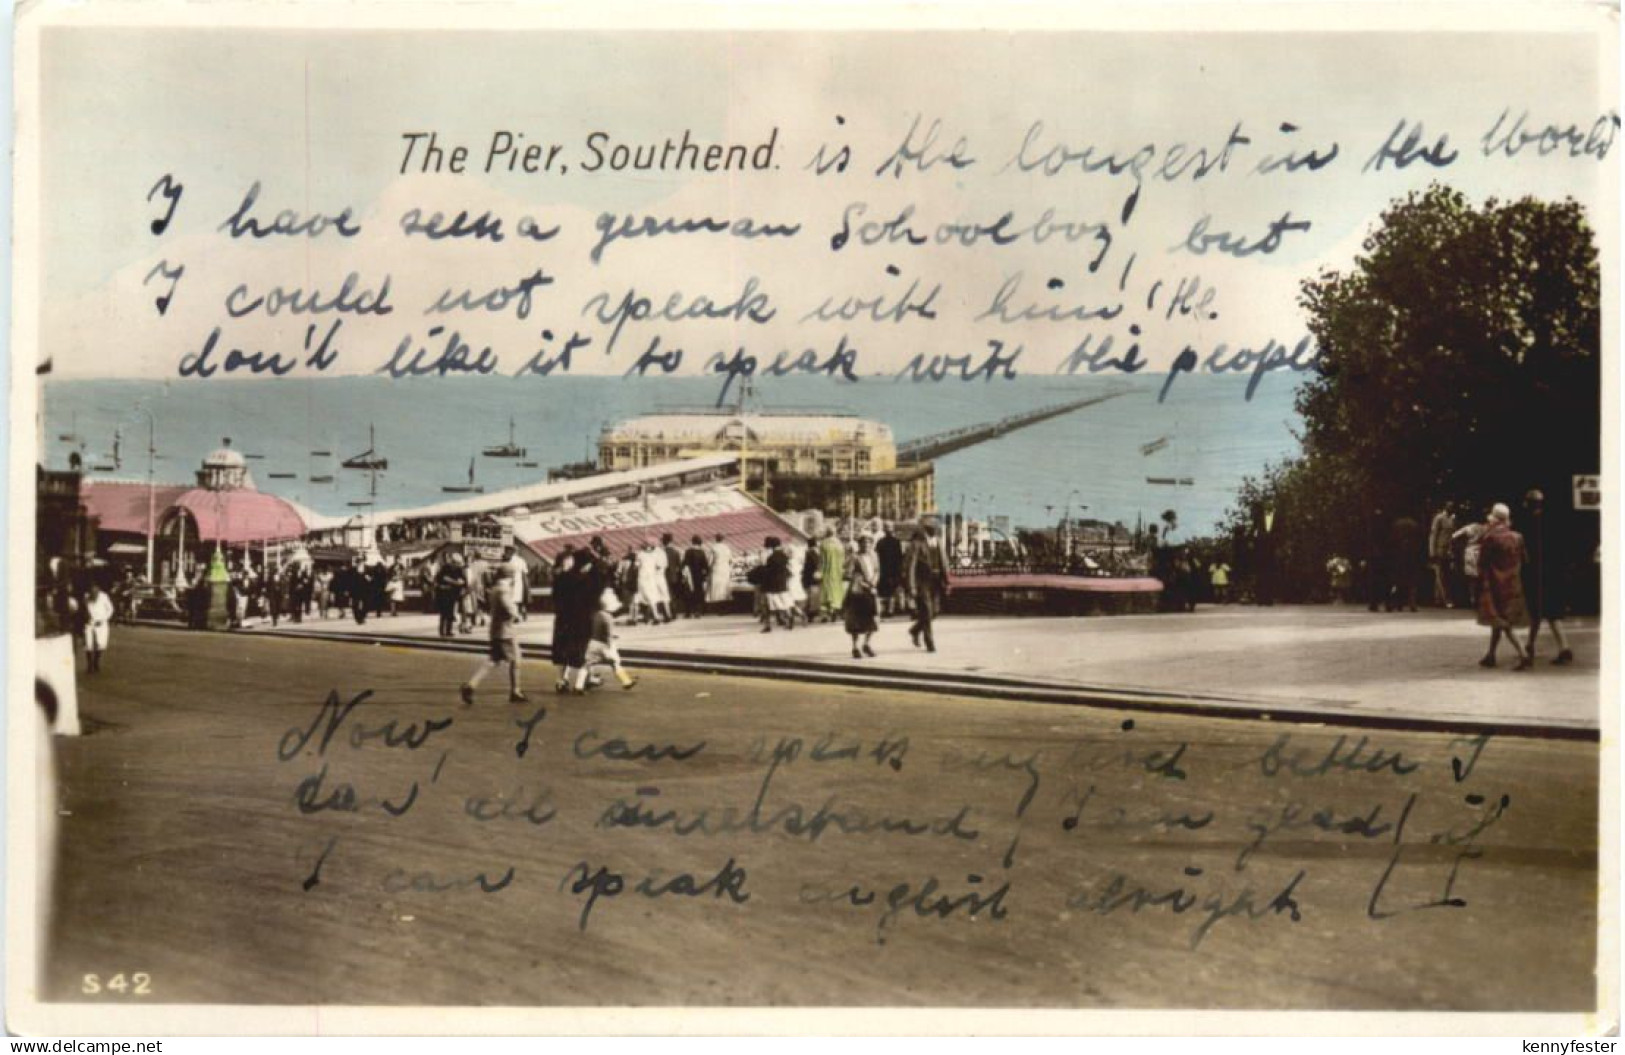 The Pier, Southend. is the longest in the World
I have seen a german Schoolboy, but
I could not speak with him! He.
don't like it to speak with the people
CONCERT PARTY
Now, I can speak english better I
can all understand, I am glad, if
I can speak english alright
S 42
www.delcampe.net
kennyfester